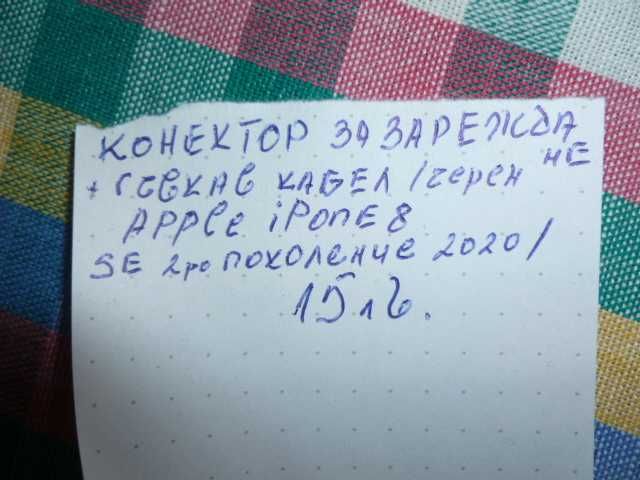 КОНЕКТОР ЗА ЗАРЕЖДА
НЕ
+ гъвкав КАБЕЛ /черен
APPLe iPonE 8
SE 2ро поколение 2020/
15 лв.